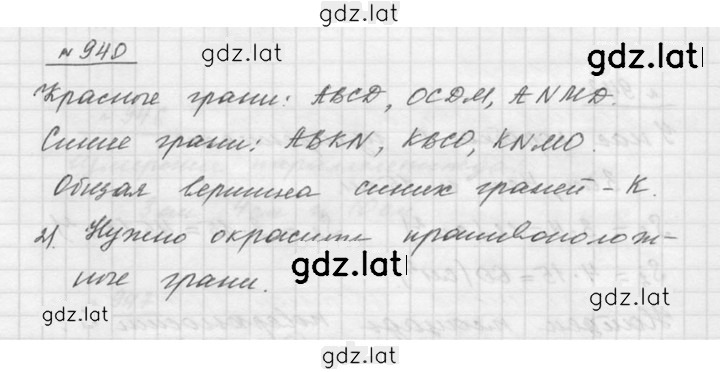 gdz.lat
№ 940
gdz.lat
gdz.lat
Красные грани: ABCD, OCDM, ANMD.
gdz.lat
Синие грани: ABKN, KBCO, KNMO.
Общая вершина синих граней - K.
2). Нужно окрасить противополож-
gdz.lat
ные грани.
gdz.lat
gdz.lat
gdz.lat